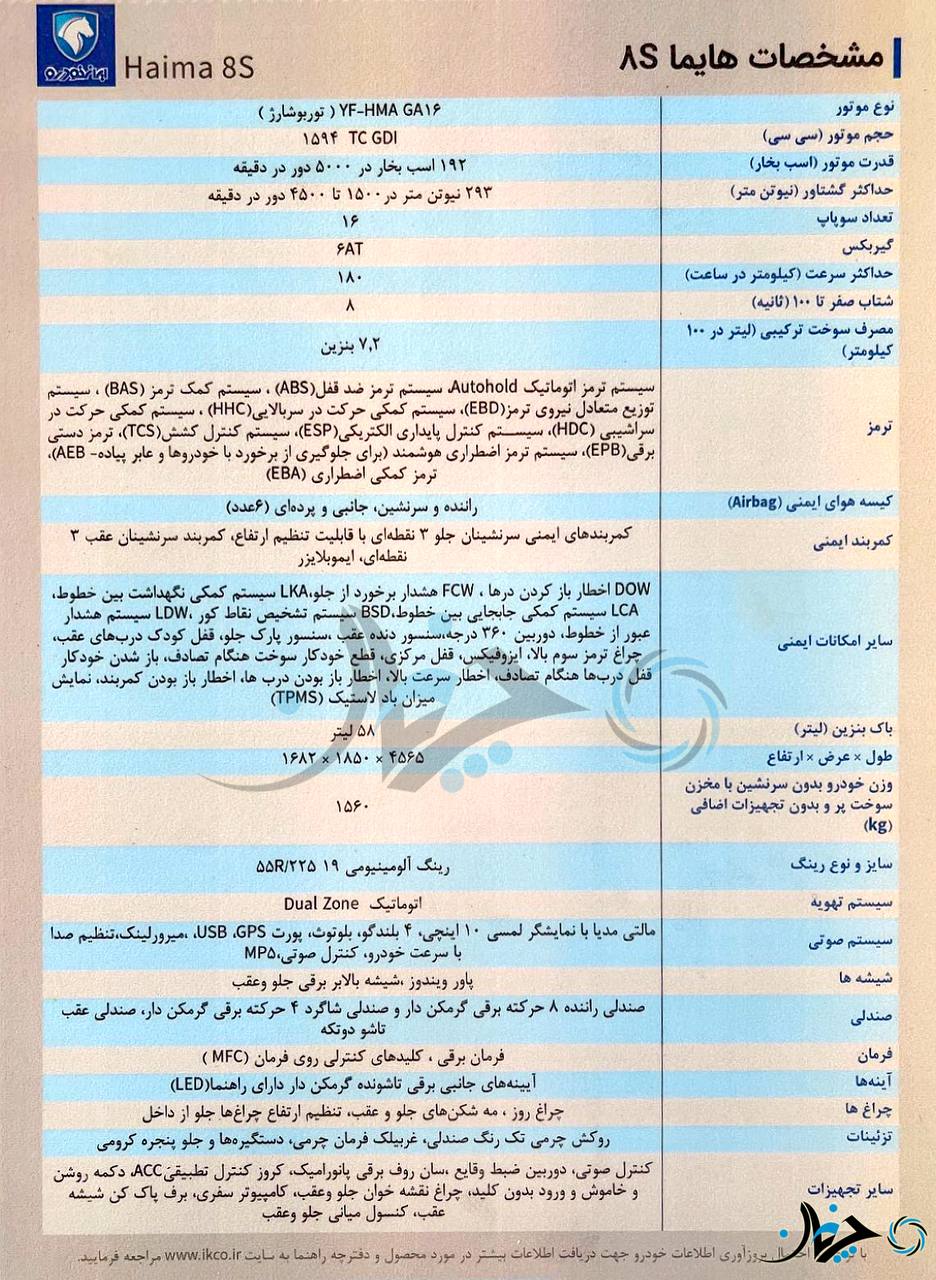 ایران‌خودرو
Haima 8S
مشخصات هایما ۸S
نوع موتور
YF-HMA GA۱۶ ( توربوشارژ )
حجم موتور (سی سی)
۱۵۹۴ TC GDI
قدرت موتور (اسب بخار)
۱۹۲ اسب بخار در ۵۰۰۰ دور در دقیقه
حداکثر گشتاور (نیوتن متر)
۲۹۳ نیوتن متر در ۱۵۰۰ تا ۴۵۰۰ دور در دقیقه
تعداد سوپاپ
۱۶
گیربکس
۶AT
حداکثر سرعت (کیلومتر در ساعت)
۱۸۰
شتاب صفر تا ۱۰۰ (ثانیه)
۸
مصرف سوخت ترکیبی (لیتر در ۱۰۰
کیلومتر)
۷,۲ بنزین
ترمز
سیستم ترمز اتوماتیک Autohold، سیستم ترمز ضد قفل(ABS) ، سیستم کمک ترمز (BAS) ، سیستم
توزیع متعادل نیروی ترمز(EBD)، سیستم کمکی حرکت در سربالایی(HHC) ، سیستم کمکی حرکت در
سراشیبی (HDC)، سیستم کنترل پایداری الکتریکی(ESP)، سیستم کنترل کشش(TCS)، ترمز دستی
برقی(EPB)، سیستم ترمز اضطراری هوشمند (برای جلوگیری از برخورد با خودروها و عابر پیاده- AEB)،
ترمز کمکی اضطراری (EBA)
کیسه هوای ایمنی (Airbag)
راننده و سرنشین، جانبی و پرده‌ای (۶عدد)
کمربند ایمنی
کمربندهای ایمنی سرنشینان جلو ۳ نقطه‌ای با قابلیت تنظیم ارتفاع، کمربند سرنشینان عقب ۳
نقطه‌ای، ایموبلایزر
سایر امکانات ایمنی
DOW اخطار باز کردن درها ، FCW هشدار برخورد از جلو،LKA سیستم کمکی نگهداشت بین خطوط،
LCA سیستم کمکی جابجایی بین خطوط،BSD سیستم تشخیص نقاط کور ،LDW سیستم هشدار
عبور از خطوط، دوربین ۳۶۰ درجه،سنسور دنده عقب ،سنسور پارک جلو، قفل کودک درب‌های عقب،
چراغ ترمز سوم بالا، ایزوفیکس، قفل مرکزی، قطع خودکار سوخت هنگام تصادف، باز شدن خودکار
قفل درب‌ها هنگام تصادف، اخطار سرعت بالا، اخطار باز بودن درب ها، اخطار باز بودن کمربند، نمایش
میزان باد لاستیک (TPMS)
باک بنزین (لیتر)
۵۸ لیتر
طول × عرض × ارتفاع
۴۵۶۵ × ۱۸۵۰ × ۱۶۸۲
وزن خودرو بدون سرنشین با مخزن
سوخت پر و بدون تجهیزات اضافی
(kg)
۱۵۶۰
سایز و نوع رینگ
رینگ آلومینیومی ۱۹ ۵۵R/۲۲۵
سیستم تهویه
اتوماتیک Dual Zone
سیستم صوتی
مالتی مدیا با نمایشگر لمسی ۱۰ اینچی، ۴ بلندگو، بلوتوث، پورت USB ،GPS، ،میرورلینک،تنظیم صدا
با سرعت خودرو، کنترل صوتی،MP۵
شیشه ها
پاور ویندوز ،شیشه بالابر برقی جلو وعقب
صندلی
صندلی راننده ۸ حرکته برقی گرمکن دار و صندلی شاگرد ۴ حرکته برقی گرمکن دار، صندلی عقب
تاشو دوتکه
فرمان
فرمان برقی ، کلیدهای کنترلی روی فرمان (MFC )
آینه‌ها
آیینه‌های جانبی برقی تاشونده گرمکن دار دارای راهنما(LED)
چراغ ها
چراغ روز ، مه شکن‌های جلو و عقب، تنظیم ارتفاع چراغ‌ها جلو از داخل
تزئینات
روکش چرمی تک رنگ صندلی، غربیلک فرمان چرمی، دستگیره‌ها و جلو پنجره کرومی
سایر تجهیزات
کنترل صوتی، دوربین ضبط وقایع ،سان روف برقی پانورامیک، کروز کنترل تطبیقیACC، دکمه روشن
و خاموش و ورود بدون کلید، چراغ نقشه خوان جلو وعقب، کامپیوتر سفری، برف پاک کن شیشه
عقب، کنسول میانی جلو وعقب
با احتمال بروزآوری اطلاعات خودرو جهت دریافت اطلاعات بیشتر در مورد محصول و دفترچه راهنما به سایت www.ikco.ir مراجعه فرمایید.